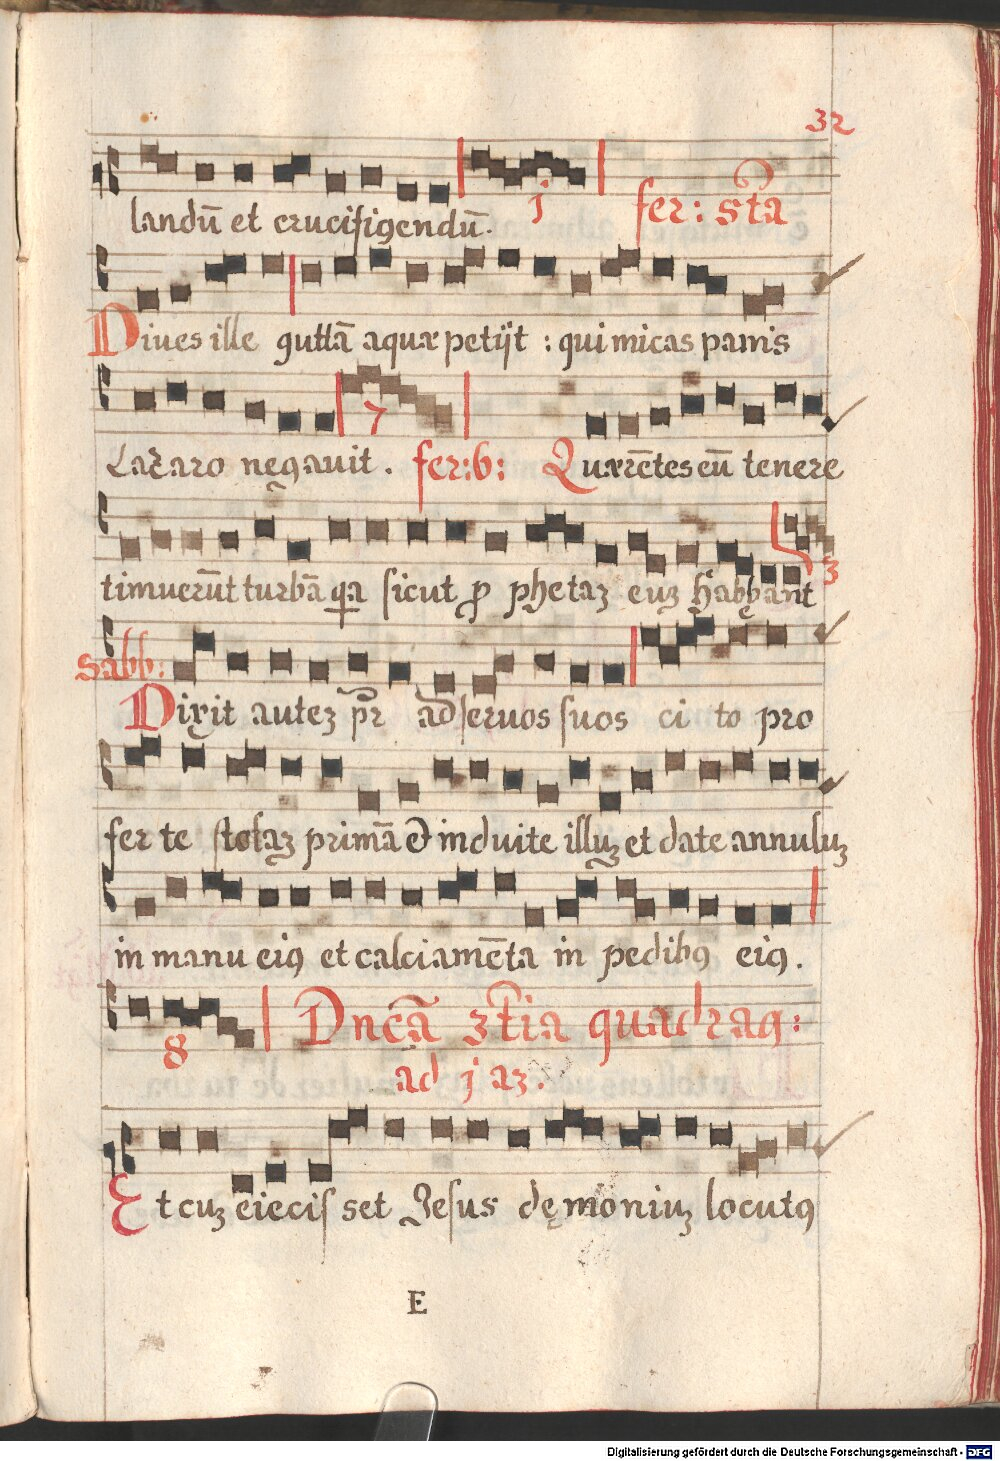 32
landū et crucifigendū.
j fer: 5ta
Diues ille guttā aquæ petijt : qui micas panis
7
Lazaro negauit . fer:6: Quærētes eū tenere
timuerūt turbā qa sicut pro phetaz euz habebant
3
Sabb:
Dixit autez pr̄ ad seruos suos ci to pro
fer te stolaz primā et induite illuz et date annuluz
in manu eiꝯ et calciamēta in pedibꝯ eiꝯ .
8 Dn̄cā 3tia quadrag:
ad j az.
Et cuz eiecis set Iesus dęmoniuz locutꝯ
E
Digitalisierung gefördert durch die Deutsche Forschungsgemeinschaft - DFG